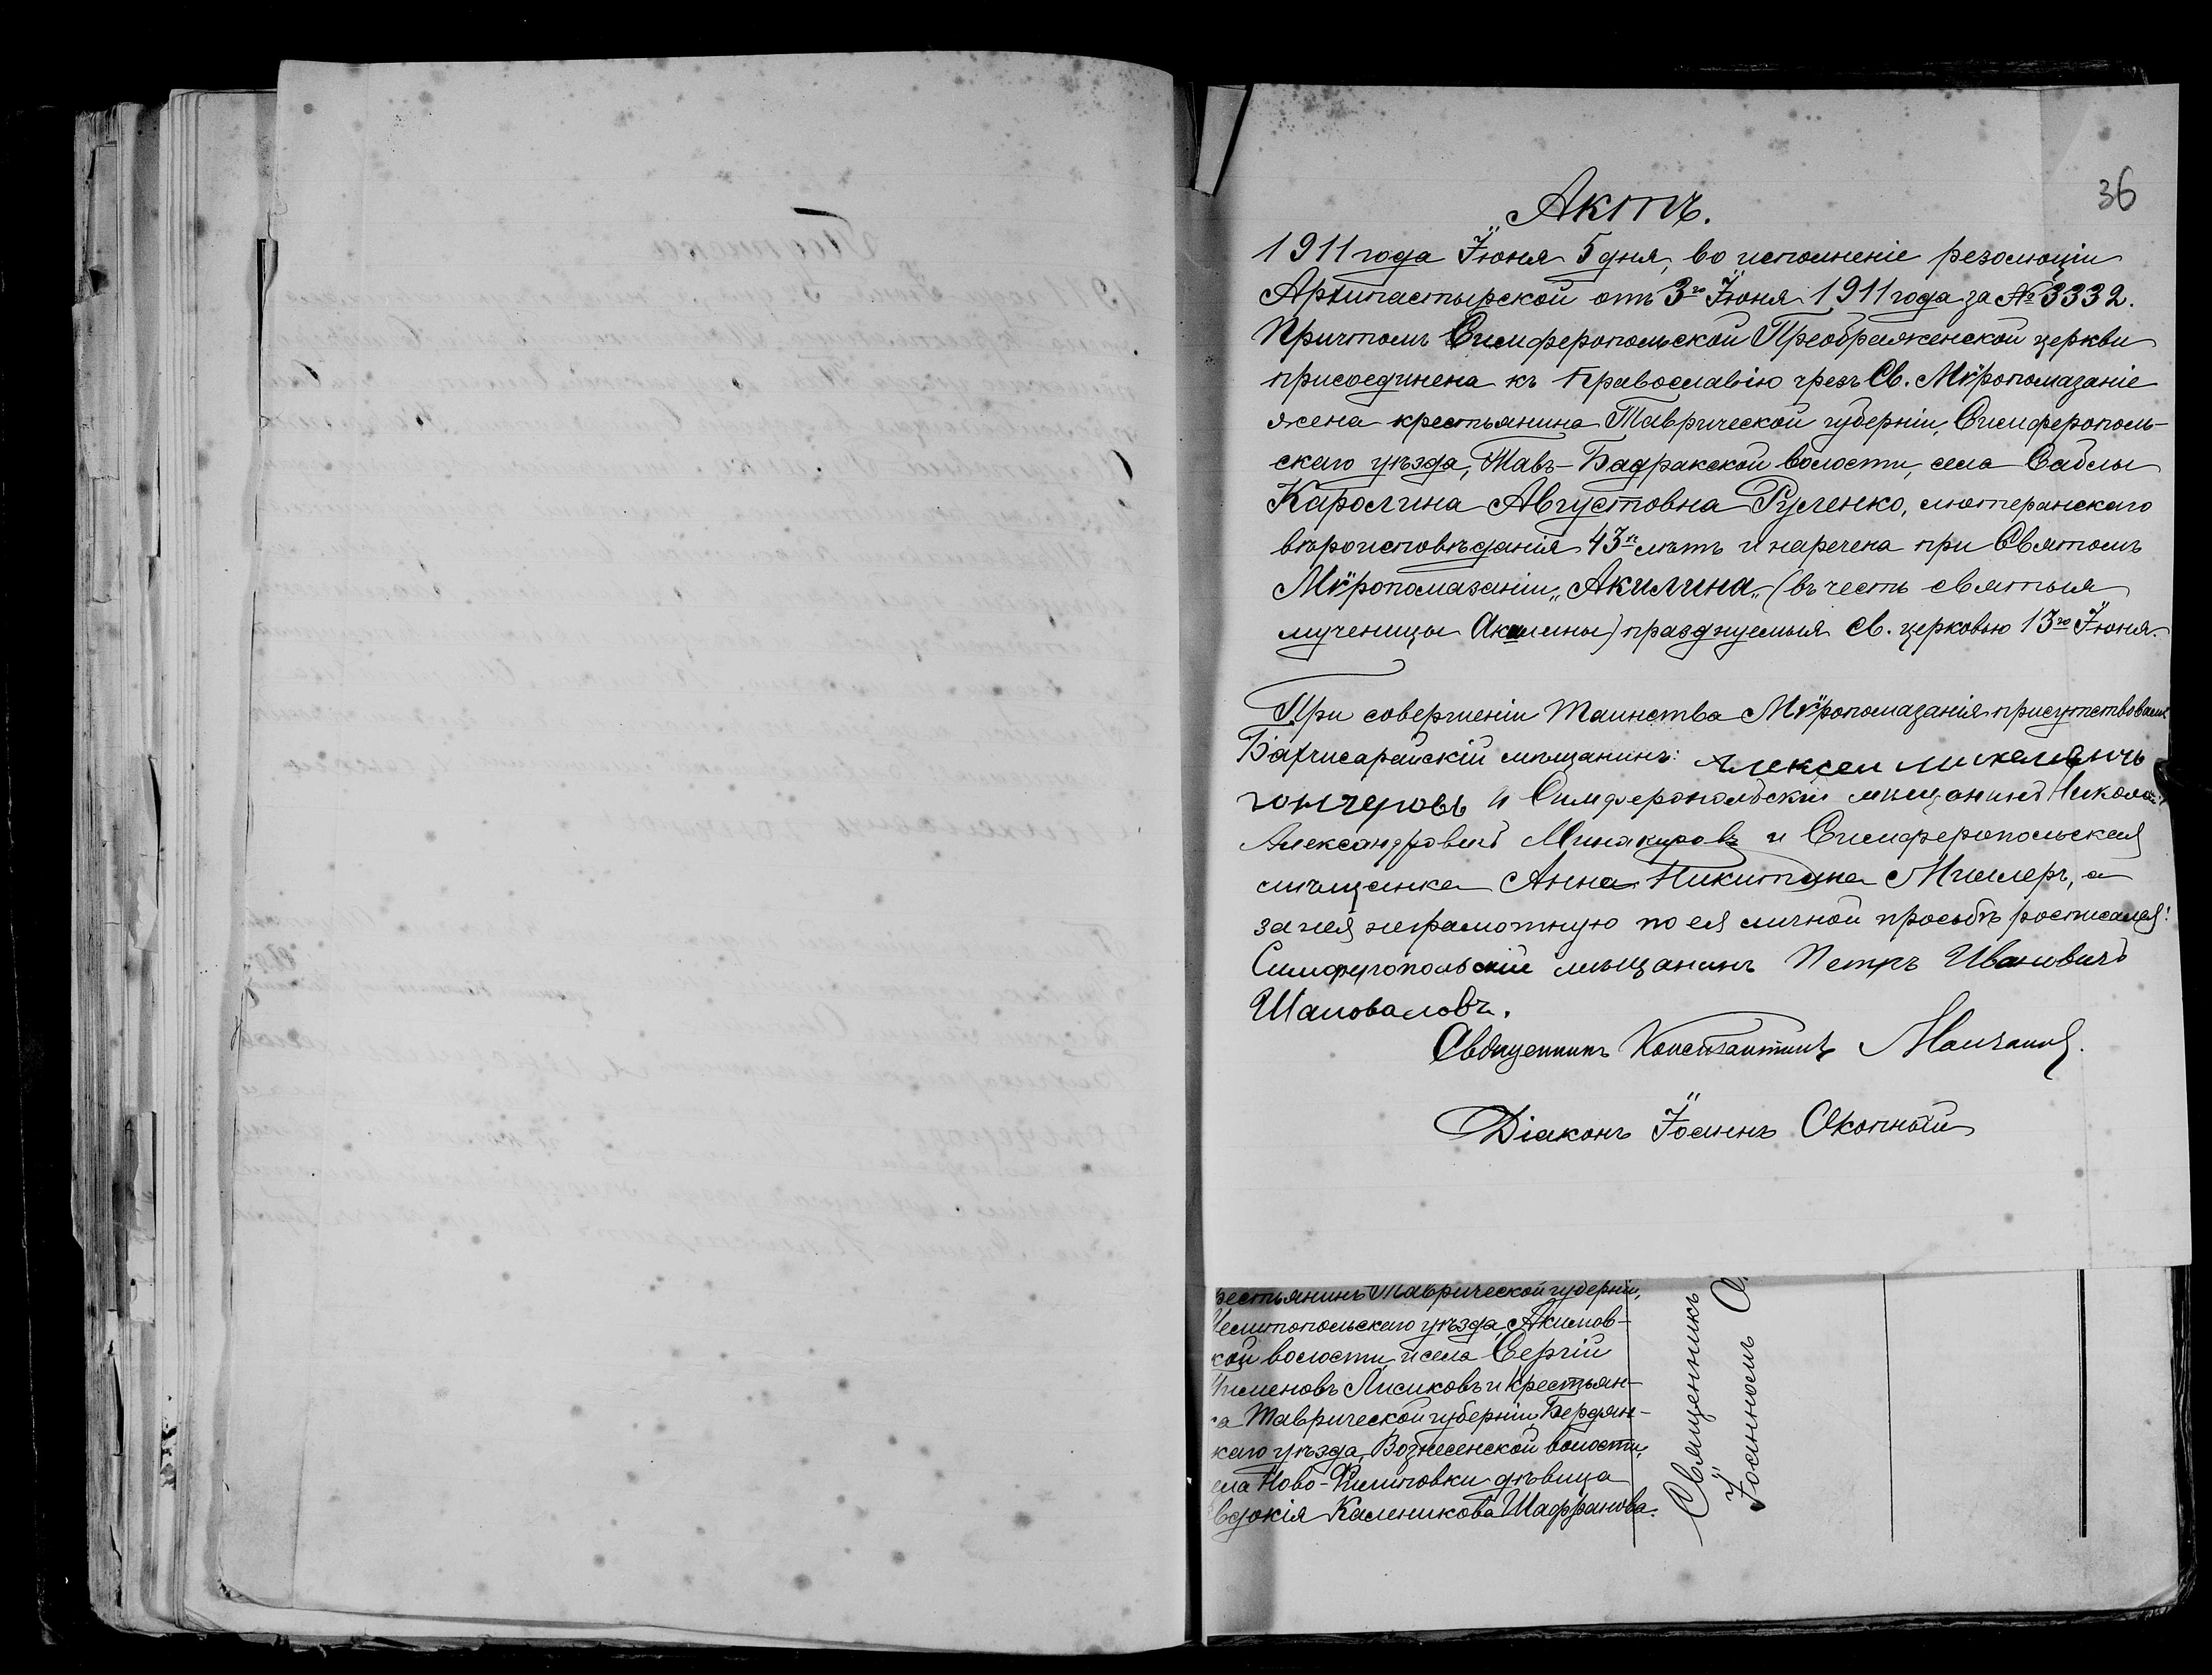 36
Актъ.
1911 года Іюня 5 дня, во исполненіе резолюціи
Архипастырской отъ 3го Іюня 1911 года за № 3332.
Причтомъ Симферопольской Преображенской церкви
присоединена къ Православію чрезъ Св. Мѵропомазаніе
жена крестьянина Таврической губерніи, Симферополь-
скаго уѣзда, Тавъ-Бадракской волости, села Саблы
Каролина Августовна Руленко, лютеранскаго
вѣроисповѣданія 43х лѣтъ и наречена при Святомъ
Мѵропомазаніи „Акилина„ (въ честь святыя
мученицы Акилины) празднуемыя Св. церковью 13го Іюня.
При совершеніи Таинства Мѵропомазанія присутствовали
Бахчисарайскій мѣщанинъ: Алексеи
гончеровъ и Симферопольскій мѣщанинъ Николай
Александровичъ Минакировъ и Симферопольская
мѣщанка Анна Никитина Миллеръ, а
за нея неграмотную по ея личной просьбѣ росписался:
Симферопольскій мѣщанинъ Петръ Ивановичъ
Шаповаловъ.
Священникъ Константинъ
Діаконъ Іоаннъ Окопный
рестьянинъ Таврической губерніи,
Мелитопольскаго уѣзда, Акимов-
кой волости и села Сергій
Пименовъ Лисиковъ и крестьян-
ка Таврической губерніи, Бердян-
каго уѣзда, Вознесенской волости,
ела Ново-Филиповки дѣвица
вдокія Каленикова Шаффанова.
Священникъ
Іоанномъ О